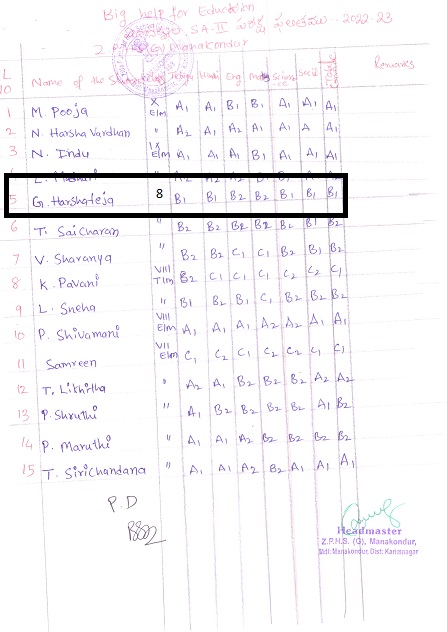 Big help for Education
SA-II 2022-23
Z.P.H.S (G) Manakondur
NO Name of the Student Class Telugu Hindi Eng Maths Science Social Remarks
1 M. Pooja X E/m A1 A1 B1 B1 A1 A1 A1
2 N. Harsha Vardhan " A2 A1 A2 A1 A1 A A1
3 N. Indu IX E/m A1 A1 A1 B1 A1 A1 A1
5 G. Harshateja 8 B1 B1 B2 B2 B1 B1 B1
6 T. Saicharan " B2 B2 B2 B2 B2 B1 B2
7 V. Sharanya " B2 B2 C1 C1 B2 B2 C1
8 K. Pavani VIII T/m B2 C1 C1 C1 C2 C2 C1
9 L. Sneha " B1 B2 B1 C1 B2 B2 B2
10 P. Shivamani VIII E/m A1 A1 A1 A2 A2 A1 A1
11 Samreen VII E/m C1 C2 C1 C2 C2 C1 C1
12 T. Likhitha " A2 A1 B2 B2 B2 A2 A2
13 P. Shruthi " A1 B2 B2 B2 B2 A1 B2
14 P. Maruthi " A1 A1 A2 B2 B2 B2 B2
15 T. Sirichandana " A1 A1 A2 B2 A1 A1 A1
P.D
Headmaster
Z.P.H.S. (G), Manakondur,
Mdl: Manakondur, Dist: Karimnagar